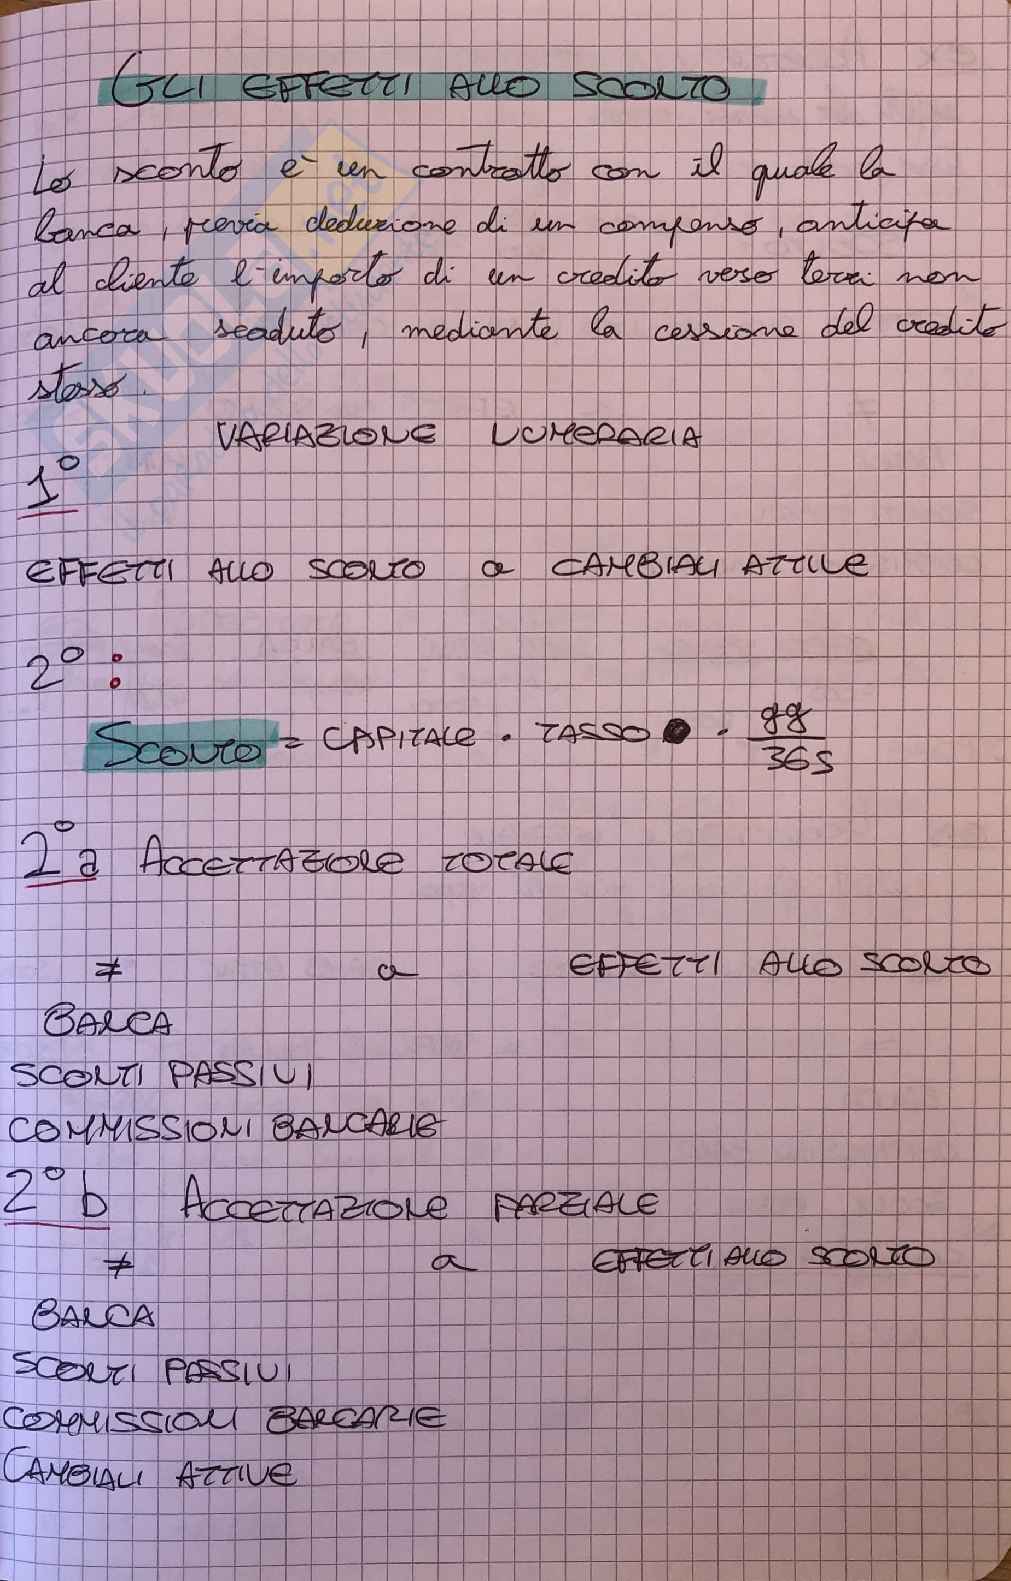 GLI EFFETTI ALLO SCONTO
Lo sconto è un contratto con il quale la
banca, previa deduzione di un compenso, anticipa
al cliente l'importo di un credito verso terzi non
ancora scaduto, mediante la cessione del credito
stesso.
VARIAZIONE NUMERARIA
1°
EFFETTI ALLO SCONTO a CAMBIALI ATTIVE
2° :
SCONTO = CAPITALE · TASSO · gg/365
2°a ACCETTAZIONE TOTALE
≠ a EFFETTI ALLO SCONTO
BANCA
SCONTI PASSIVI
COMMISSIONI BANCARIE
2°b ACCETTAZIONE PARZIALE
≠ a EFFETTI ALLO SCONTO
BANCA
SCONTI PASSIVI
COMMISSIONI BANCARIE
CAMBIALI ATTIVE